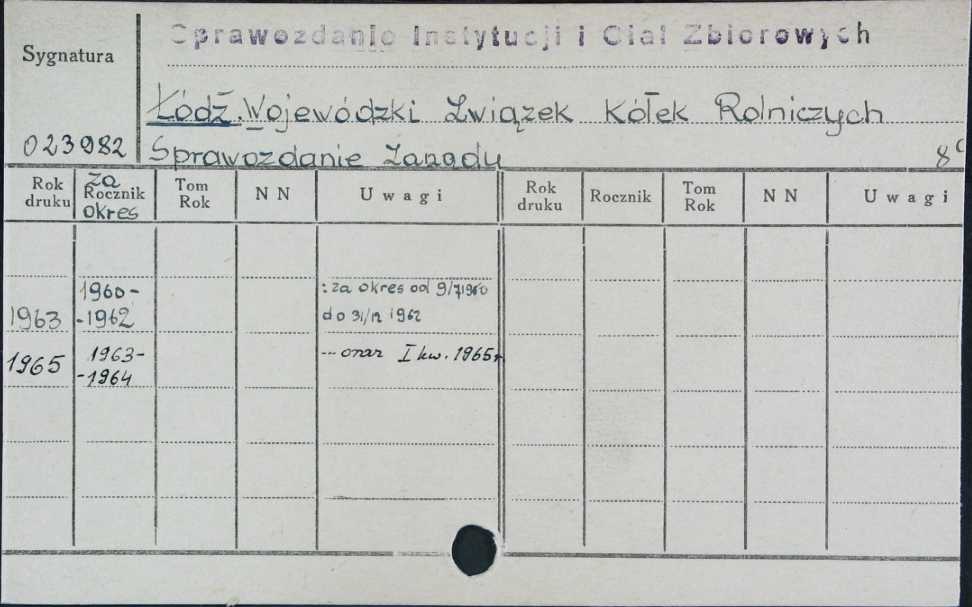 Sprawozdanie Instytucji i Ciał Zbiorowych
Sygnatura
Łódź. Wojewódzki Związek Kółek Rolniczych
023982 Sprawozdanie Zarządu 8°
Rok druku za Rocznik okres Tom Rok N N Uwagi Rok druku Rocznik Tom Rok N N Uwagi
1963 1960-
-1962 : za okres od 9/7 1960
do 31/12 1962
1965 1963-
-1964 ... oraz I kw. 1965 r.